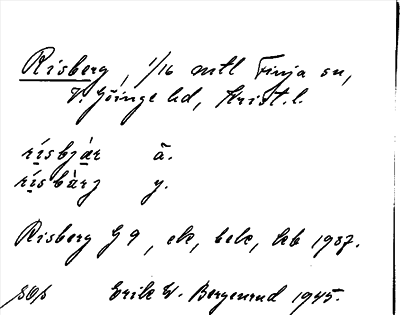 Risberg, 1/16 mtl Finja sn,
V. Göinge hd, Krist. l.
rìsbjàr ä.
rìsbàrj y.
Risberg G 9, ek, bek, kb 1937.
Erik W. Bergenrud 1945.